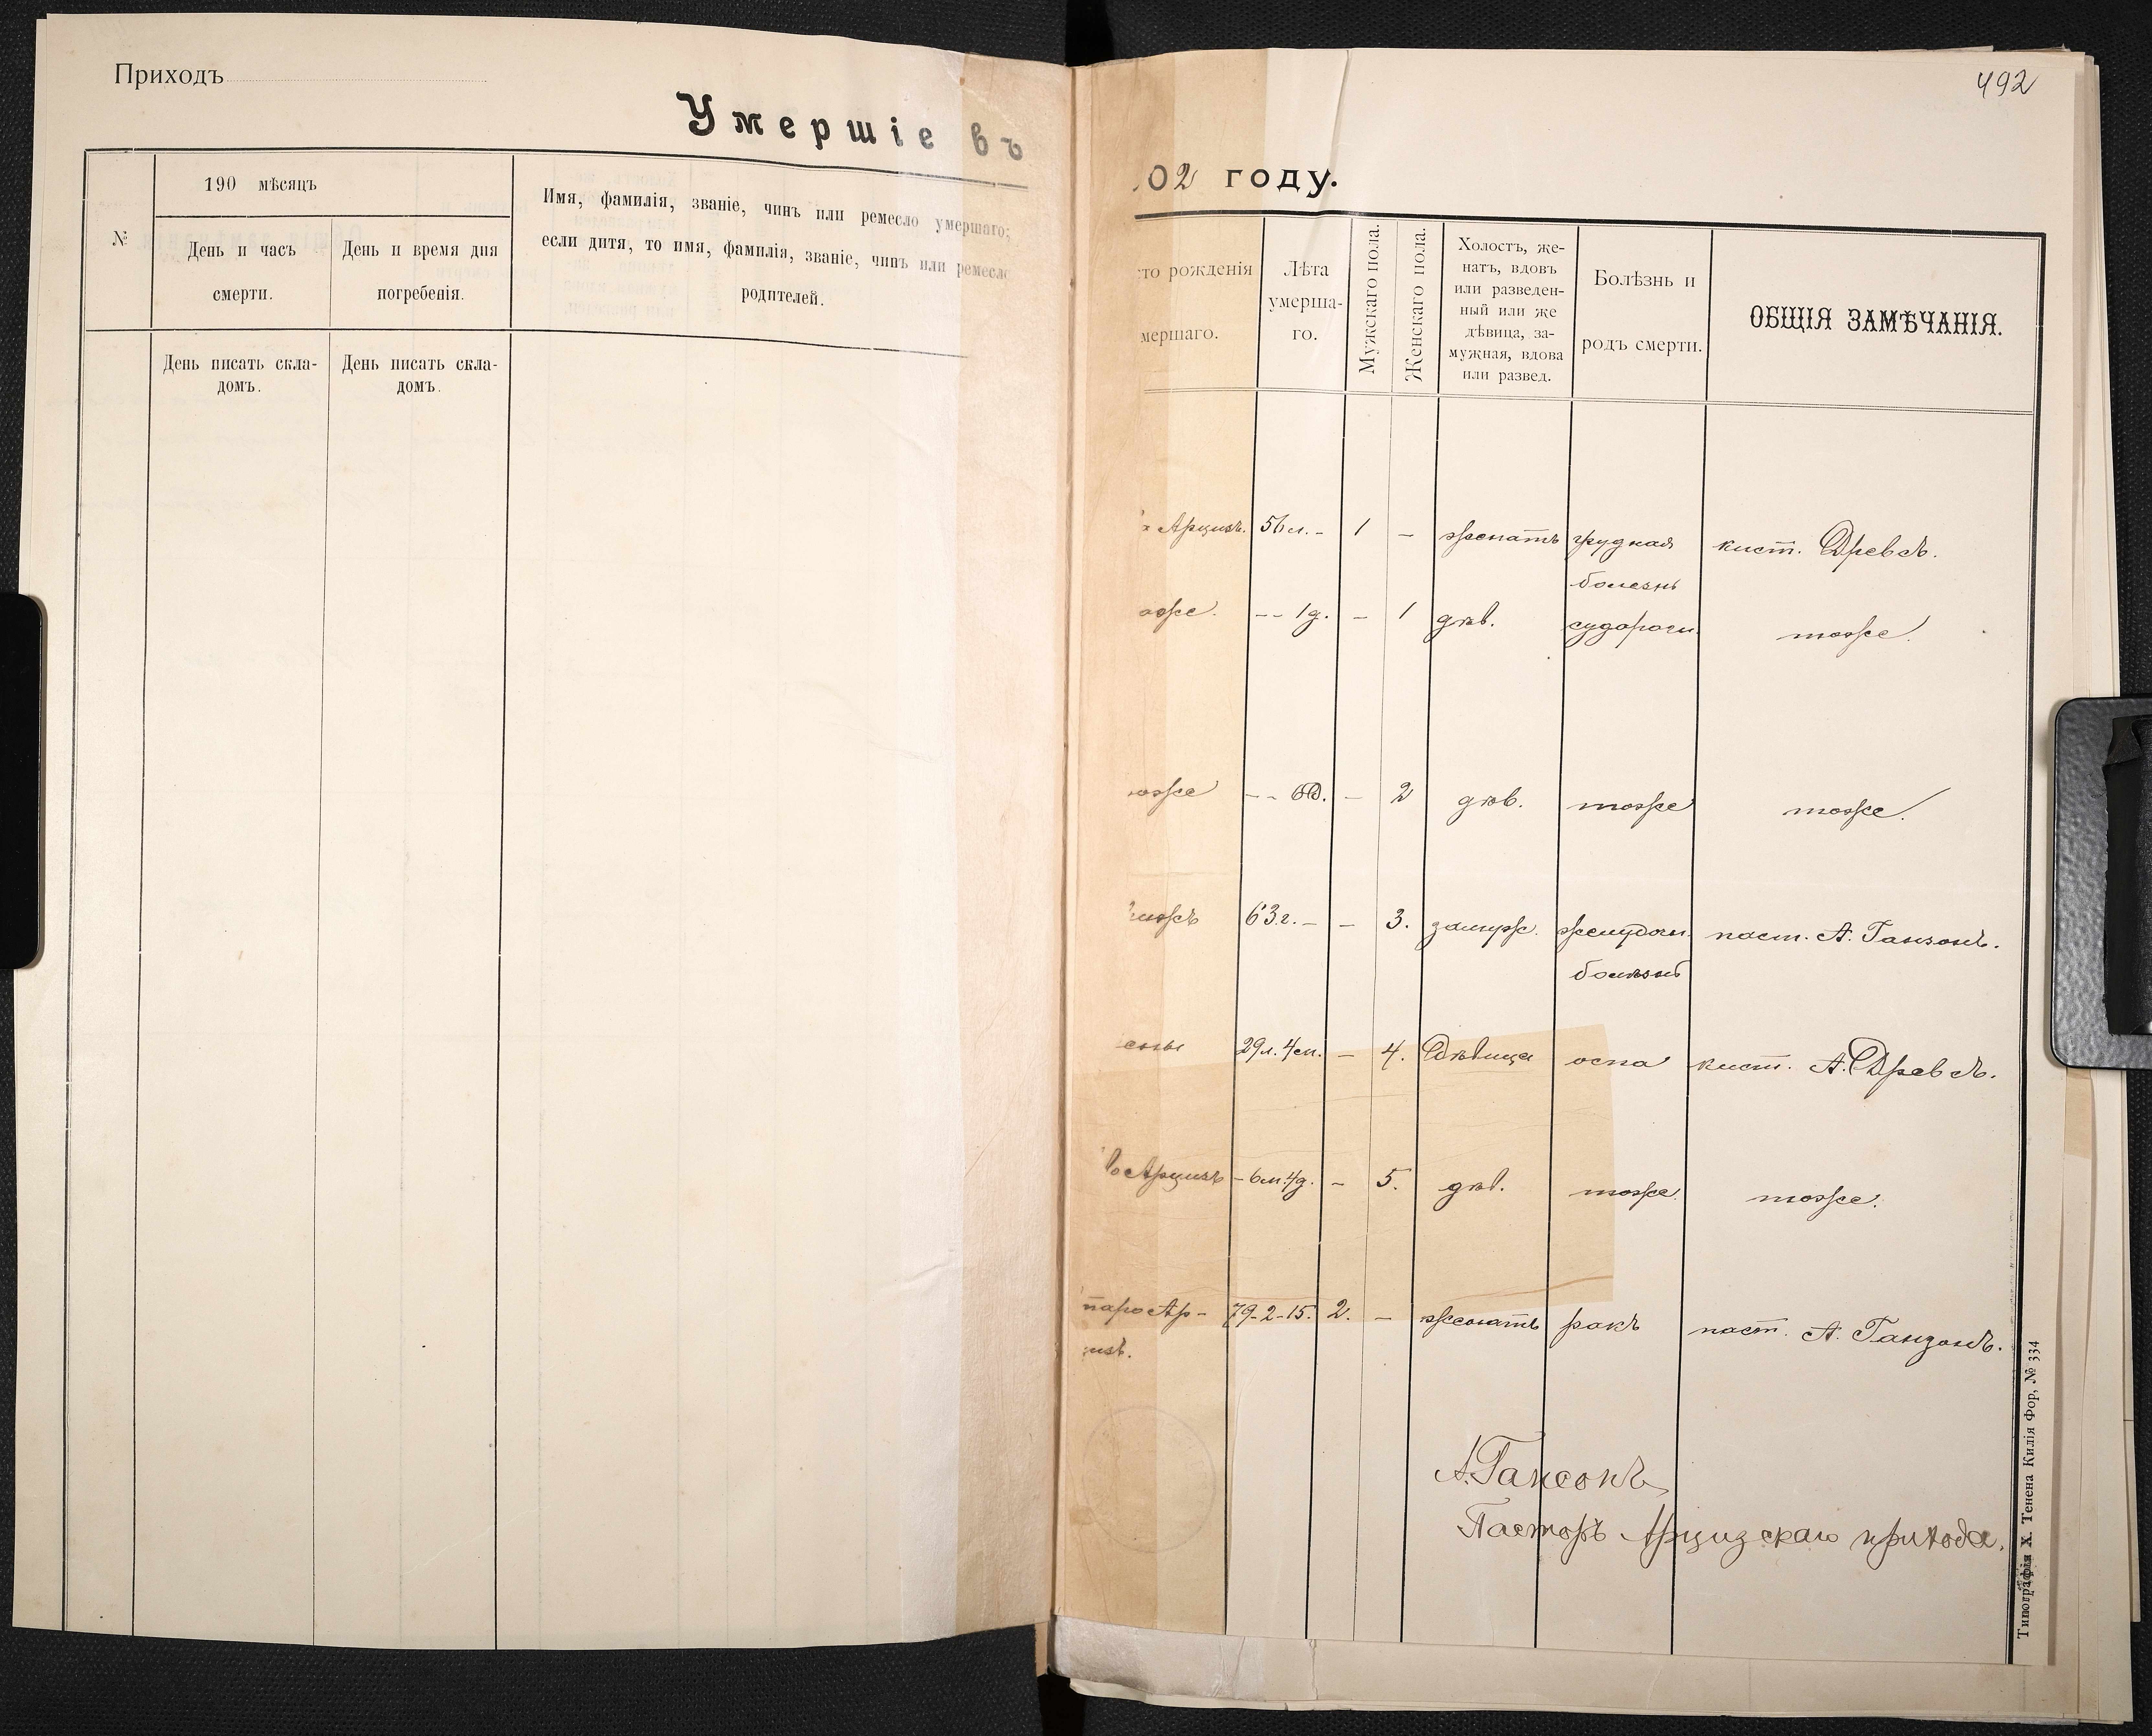 Приходъ
Умершіе въ
№
190 мѣсяцъ
День и часъ
смерти.
День и время дня
погребенія.
Имя, фамилія, званіе, чинъ или ремесло умершаго;
если дитя, то имя, фамилія, званіе, чинъ или ремесло
родителей.
День писать скла-
домъ.
День писать скла-
домъ.
492
02 году.
то рожденія
мершаго.
Лѣта
умерша-
го.
Мужскаго пола.
Женскаго пола.
Холостъ, же-
натъ, вдовъ
или разведен-
ный или же
дѣвица, за-
мужная, вдова
или развед.
Болѣзнь и
родъ смерти.
ОБЩІЯ ЗАМѢЧАНІЯ.
Арцизъ. 56 л. - 1 - женатъ грудная кист. Древсъ.
болезнь
оже. -- 1 д. - 1 дѣв. судороги. тоже.
оже -- - 2 дѣв. тоже тоже.
63 г. - - 3. замуж. желудочн. паст. А. Ганзонъ.
болѣзнь
29 л. 4 м. - 4. Дѣвица оспа кист. А. Древсъ.
Арцизъ - 6 м. 4 д. - 5. дѣв. тоже. тоже.
таро Ар- 79-2-15. 2. - женатъ ракъ паст. А. Ганзонъ.
изъ.
А. Гансонъ
Пасторъ Арцизскаго прихода.
Типографія Х. Тенена Килія Фор, № 334